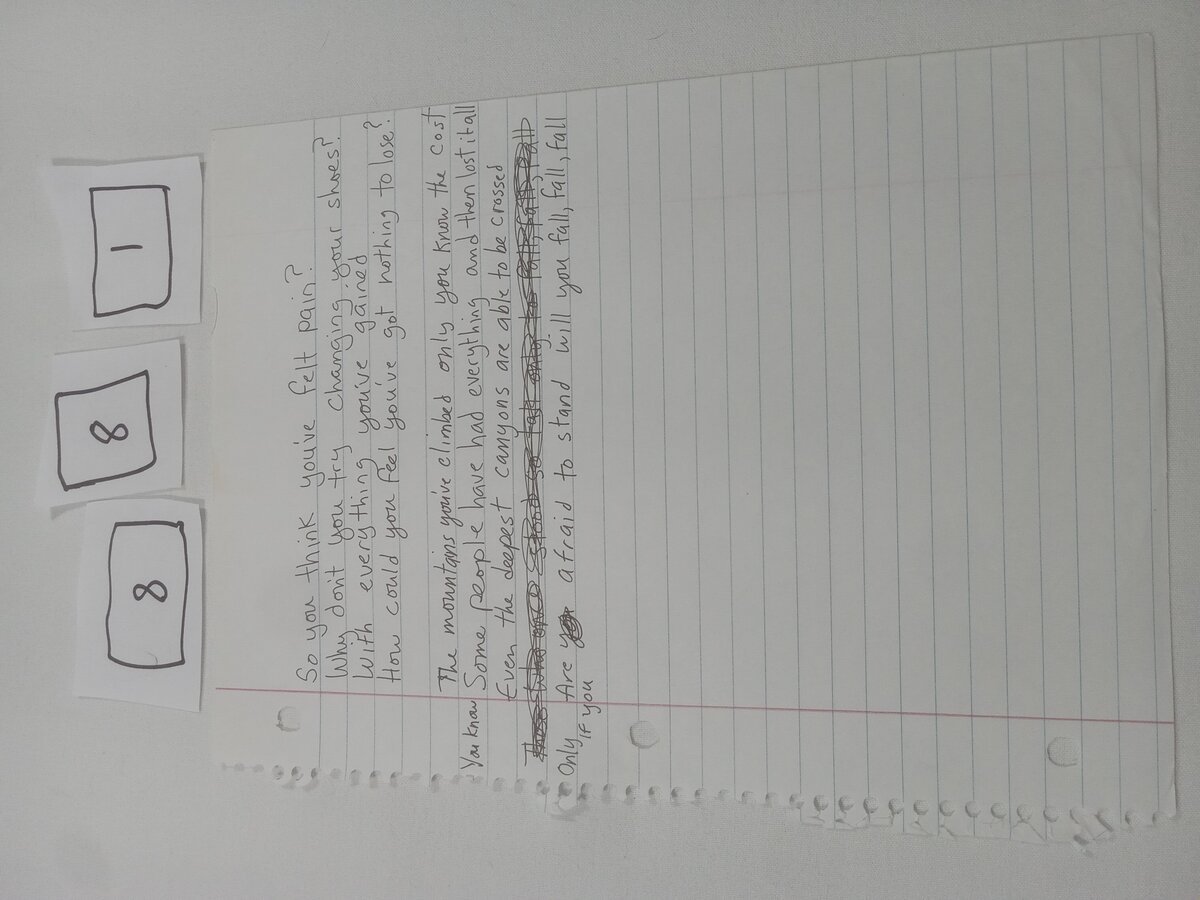 8 8 1
So you think you've felt pain?
Why don't you try changing your shoes?
With everything you've gained
How could you feel you've got nothing to lose?
The mountains you've climbed only you know the cost
You know Some people have had everything and then lost it all
Even the deepest canyons are able to be crossed
Those who once stood so tall only to fall, fall, fall
Only Are afraid to stand will you fall, fall, fall
if you